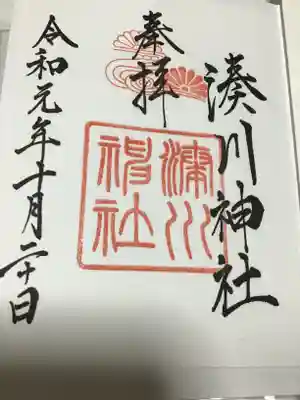 湊川神社
奉拝
湊川
神社
令和元年十月二十日